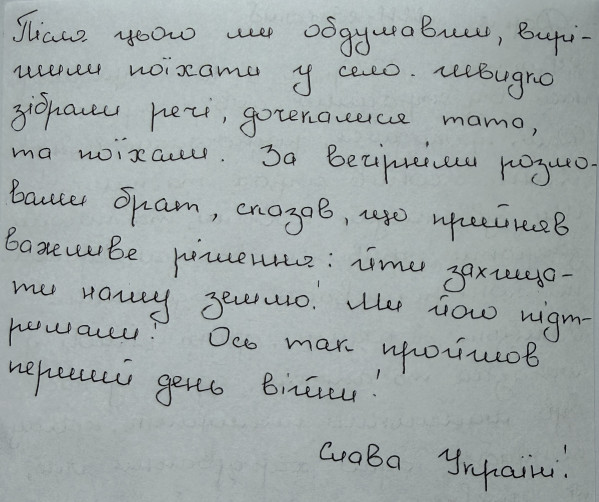 Після цього ми обдумавши, вирі-
шили поїхати у село. швидко
зібрали речі, дочекалися тата,
та поїхали. За вечірніми розмо-
вами брат, сказав, що прийняв
важливе рішення: йти захища-
ти нашу землю! Ми його підт-
римали! Ось так пройшов
перший день війни!
Слава Україні!